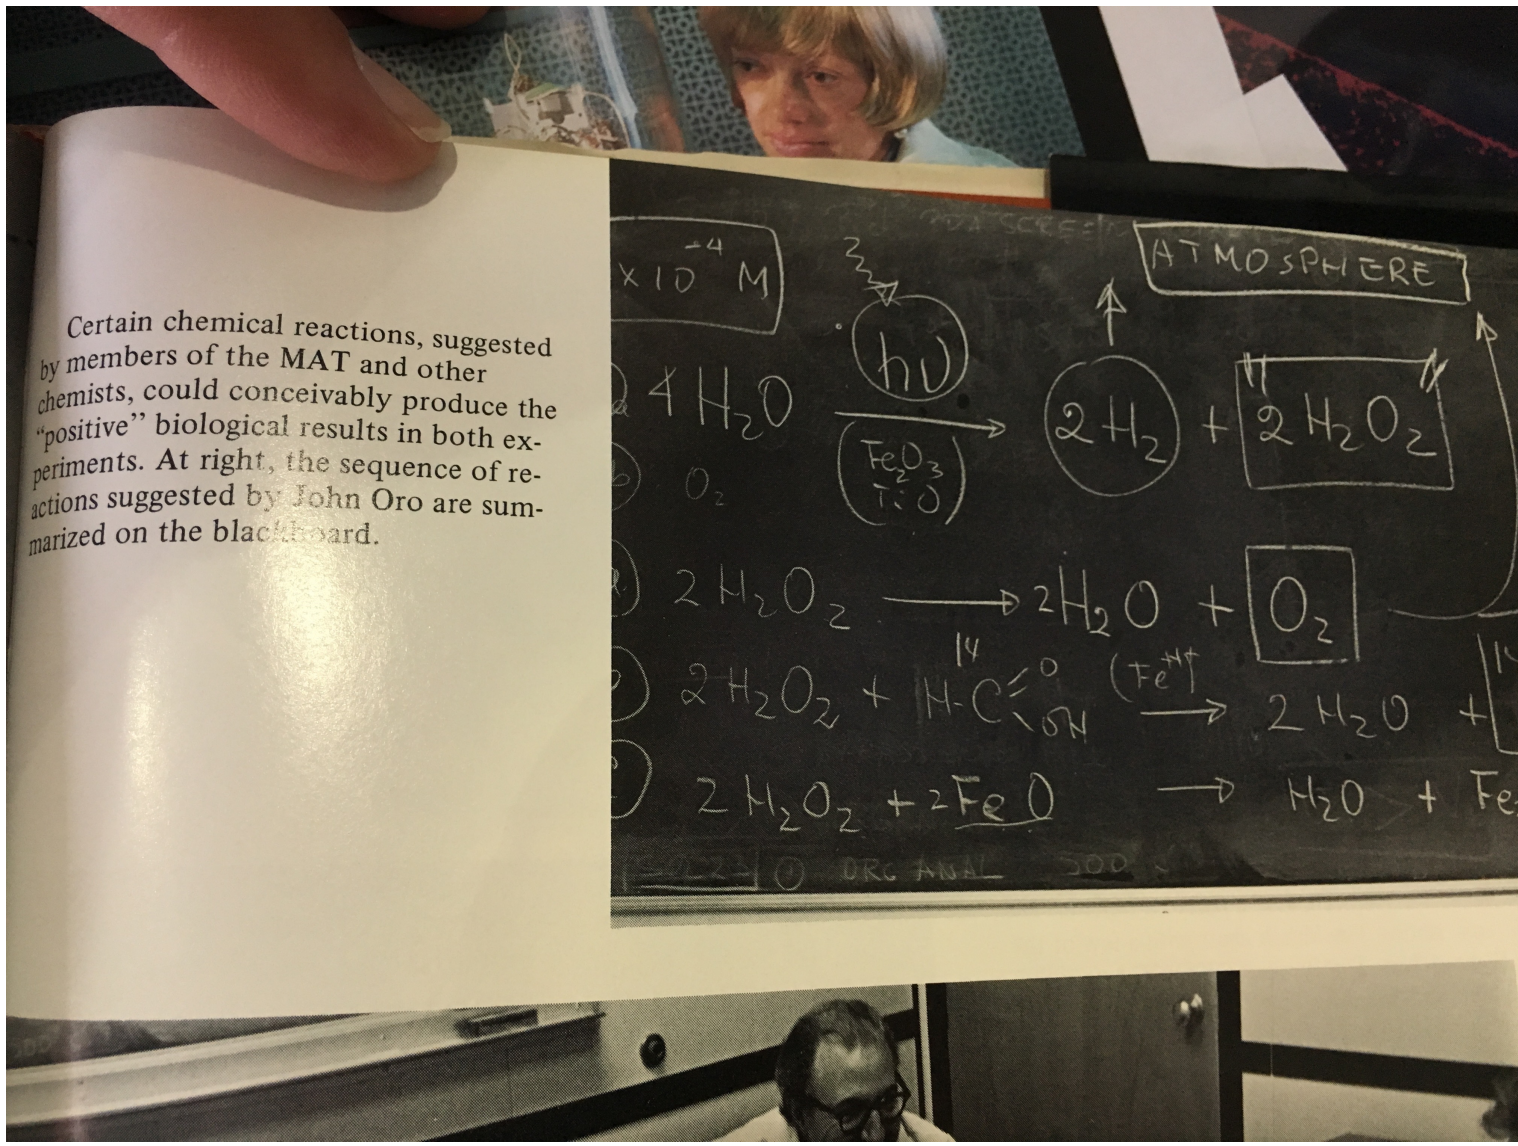 Certain chemical reactions, suggested
by members of the MAT and other
chemists, could conceivably produce the
“positive” biological results in both ex-
periments. At right, the sequence of re-
actions suggested by John Oro are sum-
marized on the blackboard.
ATMOSPHERE
x 10⁻⁴ M
hν
4 H₂O → 2 H₂ + "2 H₂O₂"
Fe₂O₃
TiO
O₂
2 H₂O₂ → 2 H₂O + O₂
14
2 H₂O₂ + H-C =O \OH (Fe⁺⁺⁺) → 2 H₂O +
2 H₂O₂ + 2 FeO → H₂O + Fe
ORG ANAL 500